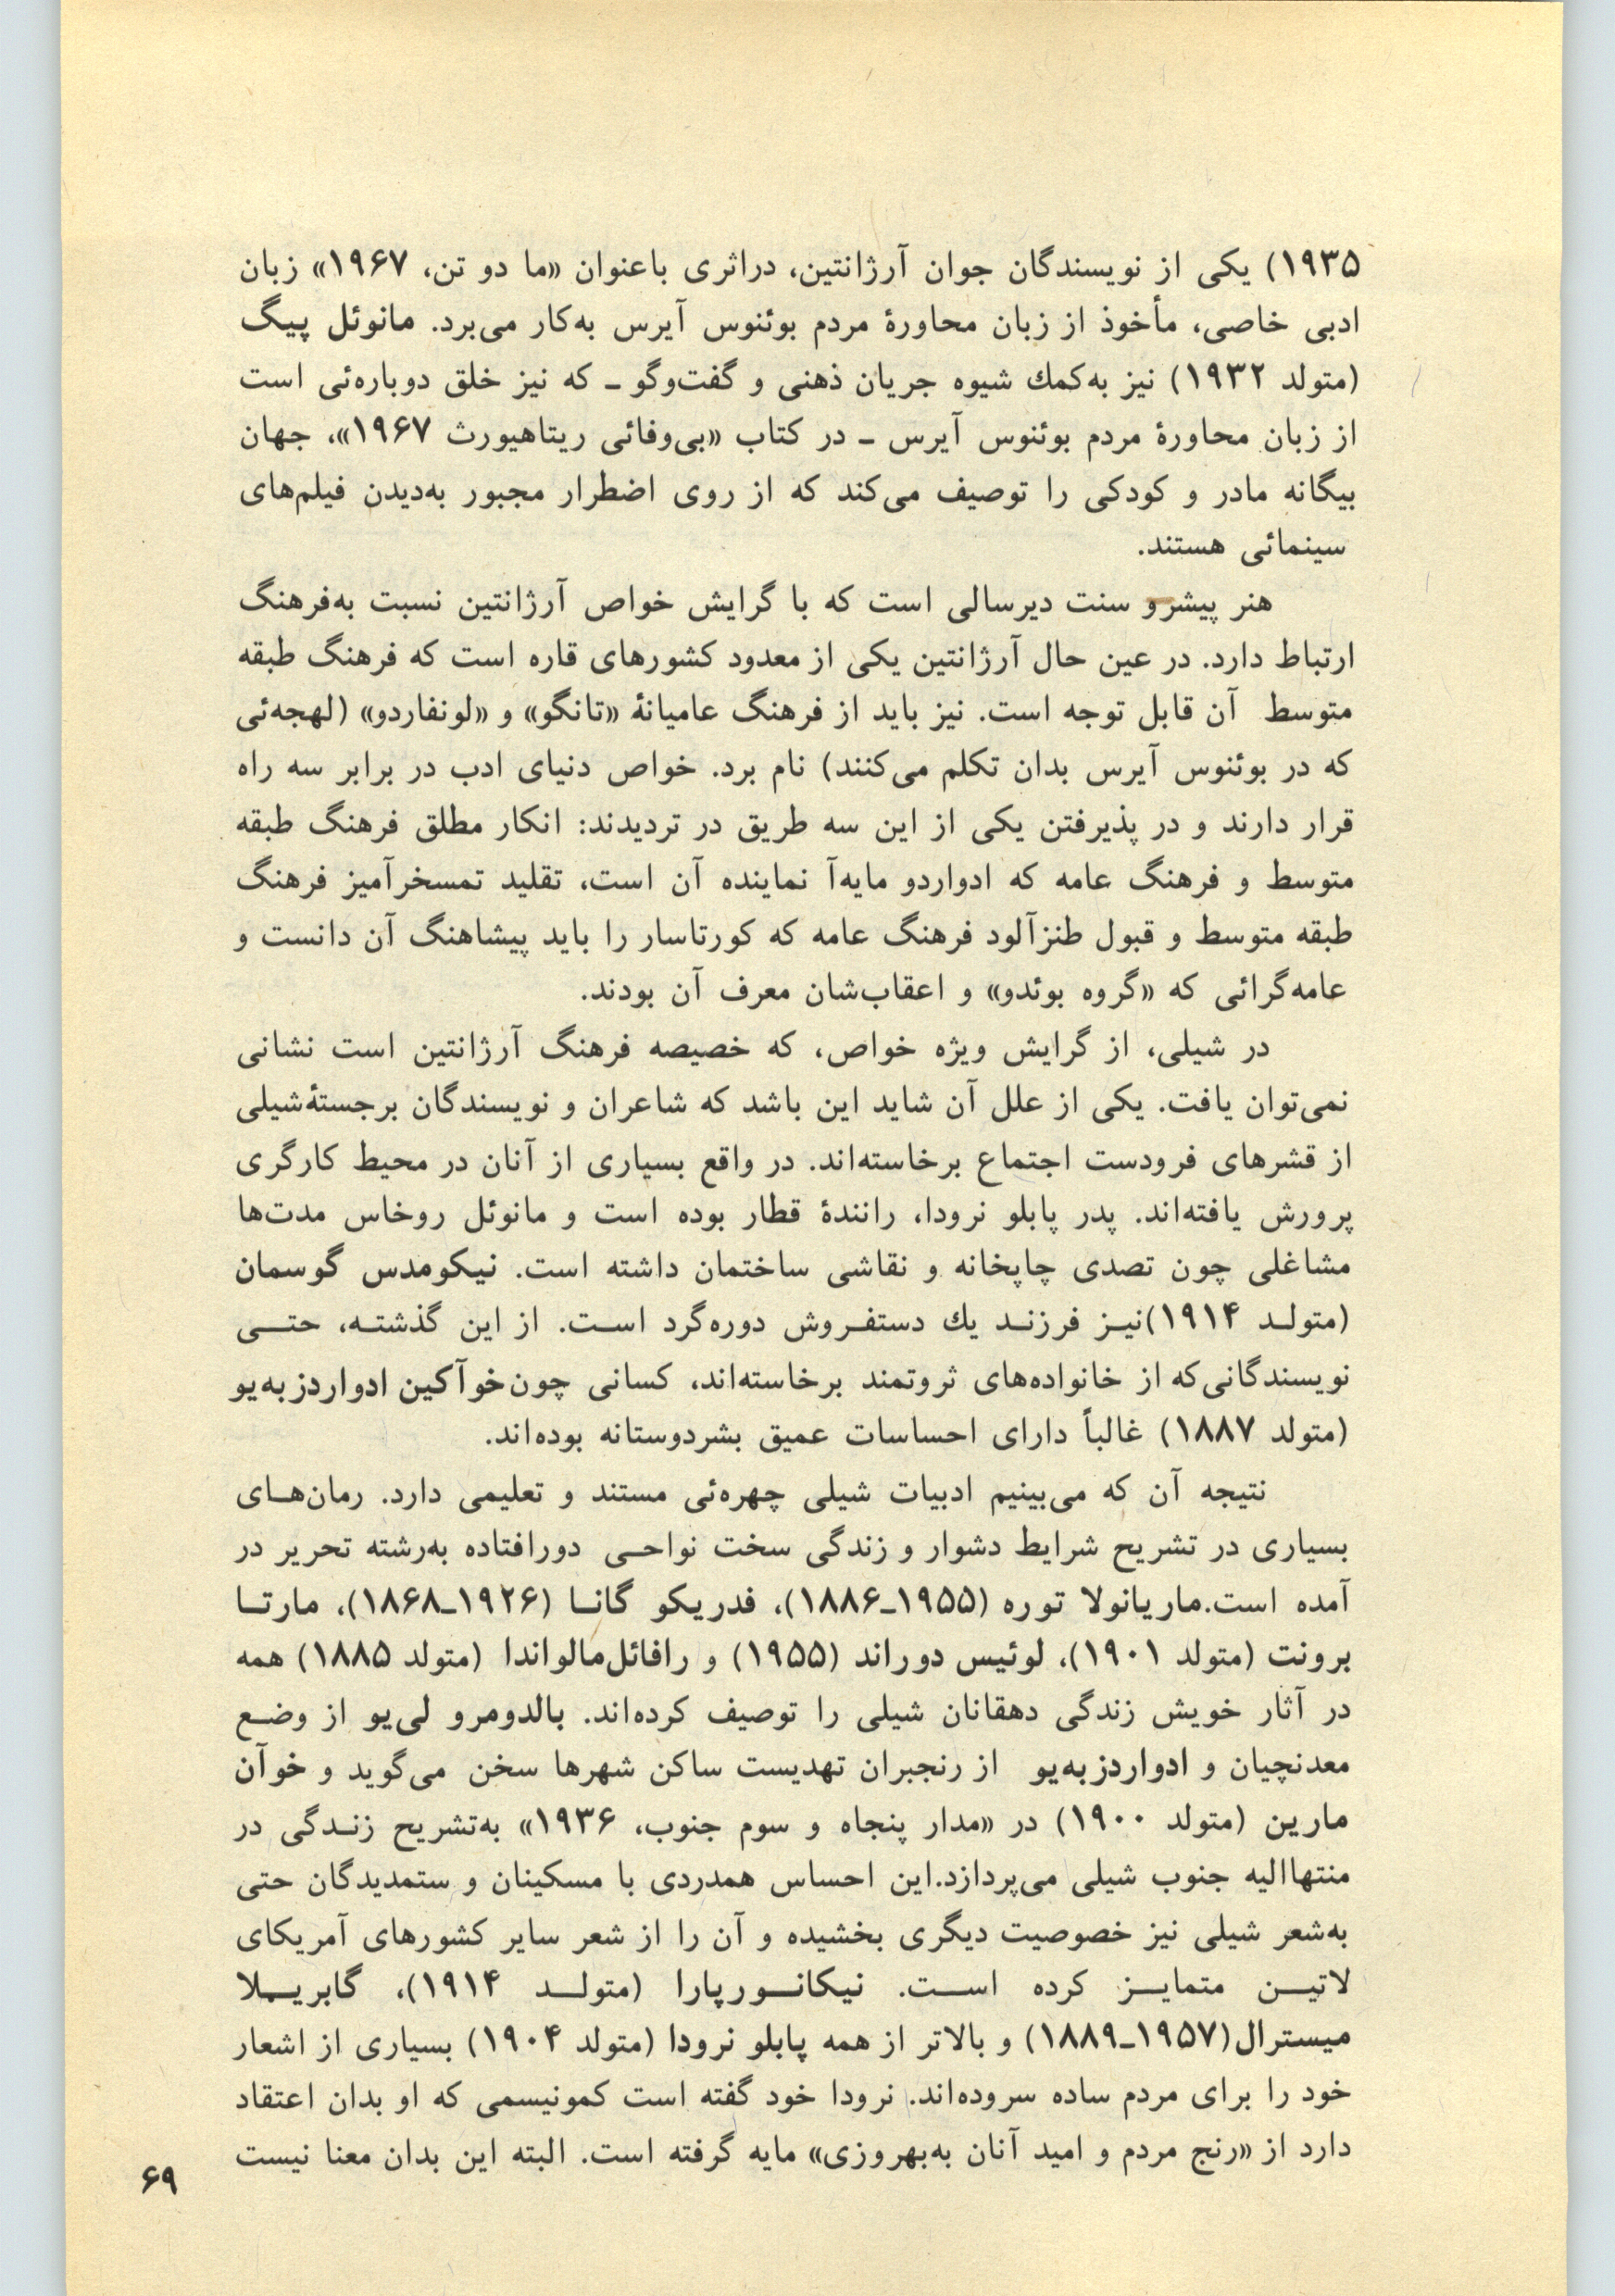 ۱۹۳۵) یکی از نویسندگان جوان آرژانتین، دراثری باعنوان «ما دو تن، ۱۹۶۷» زبان
ادبی خاصی، مأخوذ از زبان محاورهٔ مردم بوئنوس آیرس به‌کار می‌برد. مانوئل پیگ
(متولد ۱۹۳۲) نیز به‌کمك شیوه جریان ذهنی و گفت‌وگو ـ که نیز خلق دوباره‌ئی است
از زبان محاورهٔ مردم بوئنوس آیرس ـ در کتاب «بی‌وفائی ریتاهیورث ۱۹۶۷»، جهان
بیگانه مادر و کودکی را توصیف می‌کند که از روی اضطرار مجبور به‌دیدن فیلم‌های
سینمائی هستند.
هنر پیشرو سنت دیرسالی است که با گرایش خواص آرژانتین نسبت به‌فرهنگ
ارتباط دارد. در عین حال آرژانتین یکی از معدود کشورهای قاره است که فرهنگ طبقه
متوسط آن قابل توجه است. نیز باید از فرهنگ عامیانهٔ «تانگو» و «لونفاردو» (لهجه‌ئی
که در بوئنوس آیرس بدان تکلم می‌کنند) نام برد. خواص دنیای ادب در برابر سه راه
قرار دارند و در پذیرفتن یکی از این سه طریق در تردیدند: انکار مطلق فرهنگ طبقه
متوسط و فرهنگ عامه که ادواردو مایه‌آ نماینده آن است، تقلید تمسخرآمیز فرهنگ
طبقه متوسط و قبول طنزآلود فرهنگ عامه که کورتاسار را باید پیشاهنگ آن دانست و
عامه‌گرائی که «گروه بوئدو» و اعقاب‌شان معرف آن بودند.
در شیلی، از گرایش ویژه خواص، که خصیصه فرهنگ آرژانتین است نشانی
نمی‌توان یافت. یکی از علل آن شاید این باشد که شاعران و نویسندگان برجستهٔ‌شیلی
از قشرهای فرودست اجتماع برخاسته‌اند. در واقع بسیاری از آنان در محیط کارگری
پرورش یافته‌اند. پدر پابلو نرودا، رانندهٔ قطار بوده است و مانوئل روخاس مدت‌ها
مشاغلی چون تصدی چاپخانه و نقاشی ساختمان داشته است. نیکومدس گوسمان
(متولـد ۱۹۱۴)نیـز فرزنـد یك دستفـروش دوره‌گرد اسـت. از این گذشتـه، حتـــی
نویسندگانی‌که از خانواده‌های ثروتمند برخاسته‌اند، کسانی چون‌خوآکین ادواردزبه‌یو
(متولد ۱۸۸۷) غالباً دارای احساسات عمیق بشردوستانه بوده‌اند.
نتیجه آن که می‌بینیم ادبیات شیلی چهره‌ئی مستند و تعلیمی دارد. رمان‌هـای
بسیاری در تشریح شرایط دشوار و زندگی سخت نواحـی دورافتاده به‌رشته تحریر در
آمده است.ماریانولا توره (۱۹۵۵ـ۱۸۸۶)، فدریکو گانـا (۱۹۲۶ـ۱۸۶۸)، مارتـا
برونت (متولد ۱۹۰۱)، لوئیس دوراند (۱۹۵۵) و رافائل‌مالواندا (متولد ۱۸۸۵) همه
در آثار خویش زندگی دهقانان شیلی را توصیف کرده‌اند. بالدومرو لی‌یو از وضـع
معدنچیان و ادواردزبه‌یو از رنجبران تهدیست ساکن شهرها سخن می‌گوید و خوآن
مارین (متولد ۱۹۰۰) در «مدار پنجاه و سوم جنوب، ۱۹۳۶» به‌تشریح زنـدگی در
منتهاالیه جنوب شیلی می‌پردازد.این احساس همدردی با مسکینان و ستمدیدگان حتی
به‌شعر شیلی نیز خصوصیت دیگری بخشیده و آن را از شعر سایر کشورهای آمریکای
لاتیـــن متمایـــز کرده اســـت. نیکانـــورپارا (متولـــد ۱۹۱۴)، گابریـــلا
میسترال(۱۹۵۷ـ۱۸۸۹) و بالاتر از همه پابلو نرودا (متولد ۱۹۰۴) بسیاری از اشعار
خود را برای مردم ساده سروده‌اند. نرودا خود گفته است کمونیسمی که او بدان اعتقاد
دارد از «رنج مردم و امید آنان به‌بهروزی» مایه گرفته است. البته این بدان معنا نیست
۶۹